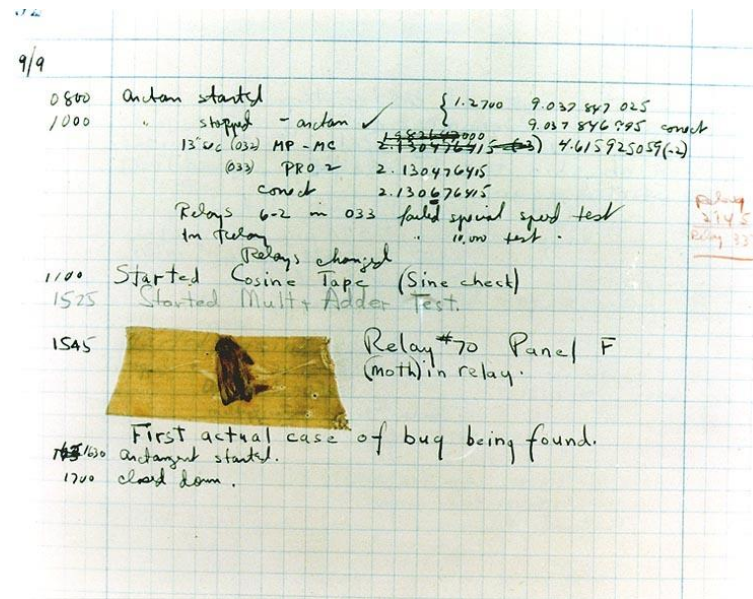 9/9
0800 antan started { 1.2700 9.037 847 025
1000 " stopped - antan ✓ 9.037 846 995 correct
13"uc (032) MP - MC 2.130476415 (-3) 4.615925059(-2)
(033) PRO 2 2.130476415
correct 2.130676415
Relays 6-2 in 033 failed special speed test
In Relay " 10.000 test .
Relays changed
1100 Started Cosine Tape (Sine check)
1525 Started Mult + Adder Test.
1545 Relay #70 Panel F
(moth) in relay.
First actual case of bug being found.
1630 arctangent started.
1700 closed down.
Relay
Relay